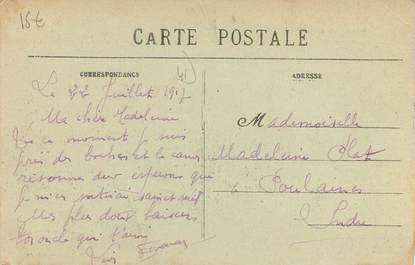 15€
CARTE POSTALE
CORRESPONDANCE
ADRESSE
Le 22 Juillet 1917
Ma chère Madeleine
En ce moment je suis
près des boches et le canon
résonne espérons que
je m'en sortirai sain et sauf
Mes plus doux baisers
qui t'aime
Mademoiselle
Madeleine
à Poulaines
Indre